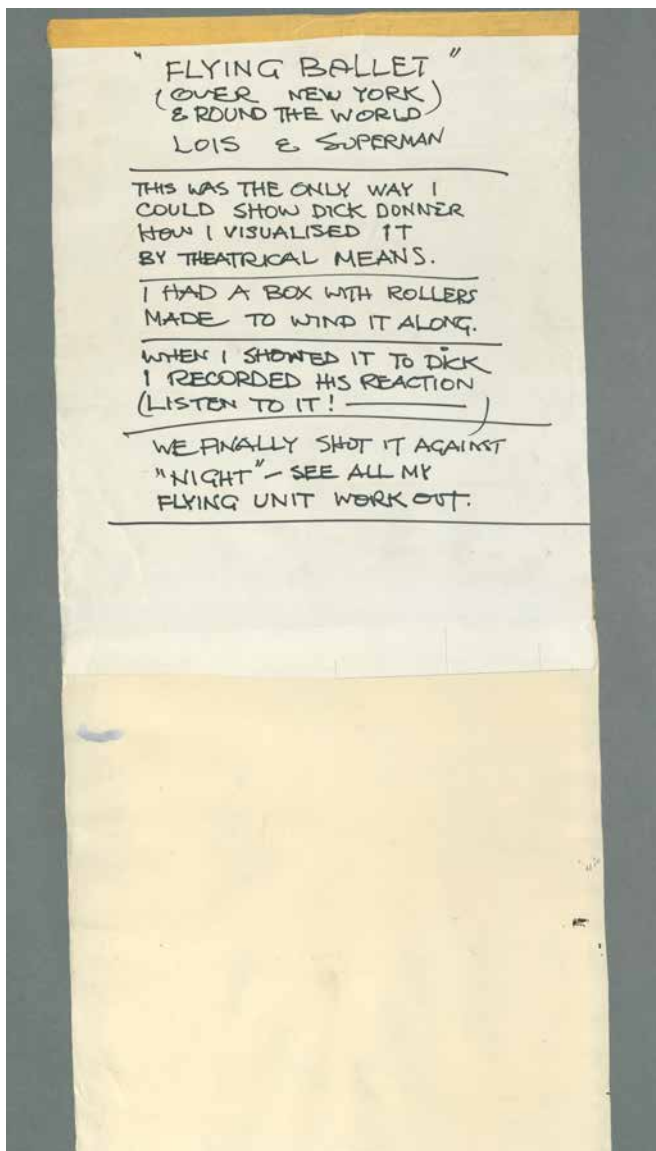 "FLYING BALLET"
(OVER NEW YORK)
& ROUND THE WORLD
LOIS & SUPERMAN
THIS WAS THE ONLY WAY I
COULD SHOW DICK DONNER
HOW I VISUALISED IT
BY THEATRICAL MEANS.
I HAD A BOX WITH ROLLERS
MADE TO WIND IT ALONG.
WHEN I SHOWED IT TO DICK
I RECORDED HIS REACTION
(LISTEN TO IT! ———)
WE FINALLY SHOT IT AGAINST
"NIGHT" – SEE ALL MY
FLYING UNIT WORK OUT.